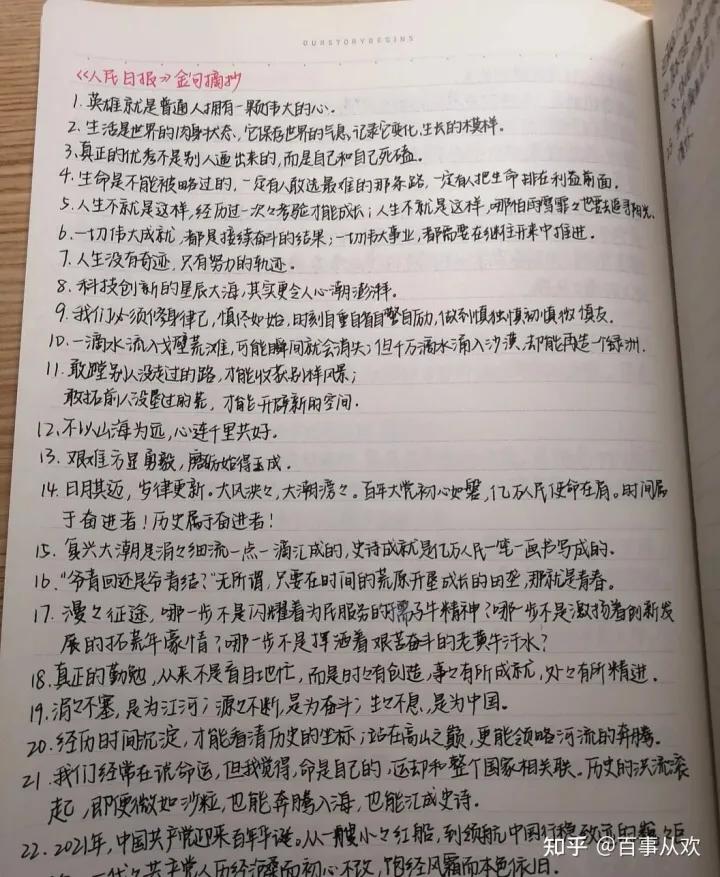 OURSTORYBEGINS
《人民日报》金句摘抄
1. 英雄就是普通人拥有一颗伟大的心.
2. 生活是世界的肉身状态, 它保存世界的气息, 记录它变化, 生长的模样。
3. 真正的优秀不是别人逼出来的, 而是自己和自己死磕。
4. 生命是不能被略过的, 一定有人敢选最难的那条路, 一定有人把生命排在利益前面。
5. 人生不就是这样, 经历过一次々考验才能成长; 人生不就是这样, 哪怕雨雪霏々也要去追寻阳光.
6. 一切伟大成就, 都是接续奋斗的结果; 一切伟大事业, 都需要在继往开来中推进.
7. 人生没有奇迹, 只有努力的轨迹.
8. 科技创新的星辰大海, 其实更令人心潮澎湃。
9. 我们必须修身律己, 慎终如始, 时刻自重自省自警自励, 做到慎独慎初慎微慎友.
10. 一滴水流入戈壁荒滩, 可能瞬间就会消失; 但千万滴水涌入沙漠, 却能再造一个绿洲.
11. 敢蹚别人没走过的路, 才能收获别样风景;
敢拓前人没垦过的荒, 才能开辟新的空间.
12. 不以山海为远, 心连千里共好.
13. 艰难方显勇毅, 磨砺始得玉成.
14. 日月其迈, 岁律更新。大风泱々, 大潮滂々。百年大党初心如磐, 亿万人民使命在肩。时间属
于奋进者! 历史属于奋进者!
15. 复兴大潮是涓々细流一点一滴汇成的, 史诗成就是亿万人民一笔一画书写成的.
16. “爷青回还是爷青结?”无所谓, 只要在时间的荒原开垦成长的田垄, 那就是青春。
17. 漫々征途, 哪一步不是闪耀着为民服务的孺子牛精神? 哪一步不是激扬着创新发
展的拓荒牛豪情? 哪一步不是挥洒着艰苦奋斗的老黄牛汗水?
18. 真正的勤勉, 从来不是盲目地忙, 而是时々有创造, 事々有所成就, 处々有所精进.
19. 涓々不塞, 是为江河; 源々不断, 是为奋斗; 生々不息, 是为中国。
20. 经历时间沉淀, 才能看清历史的坐标; 站在高山之巅, 更能领略河流的奔腾。
21. 我们经常在说命运, 但我觉得, 命是自己的, 运却和整个国家相关联. 历史的洪流滚
起, 即便微如沙粒, 也能奔腾入海, 也能汇成史诗.
22. 2021年, 中国共产党迎来百年华诞。从一艘小々红船, 到领航中国行稳致远的巍々巨
一代々共产党人历经沧桑而初心不改, 饱经风霜而本色依旧.
知乎 @百事从欢